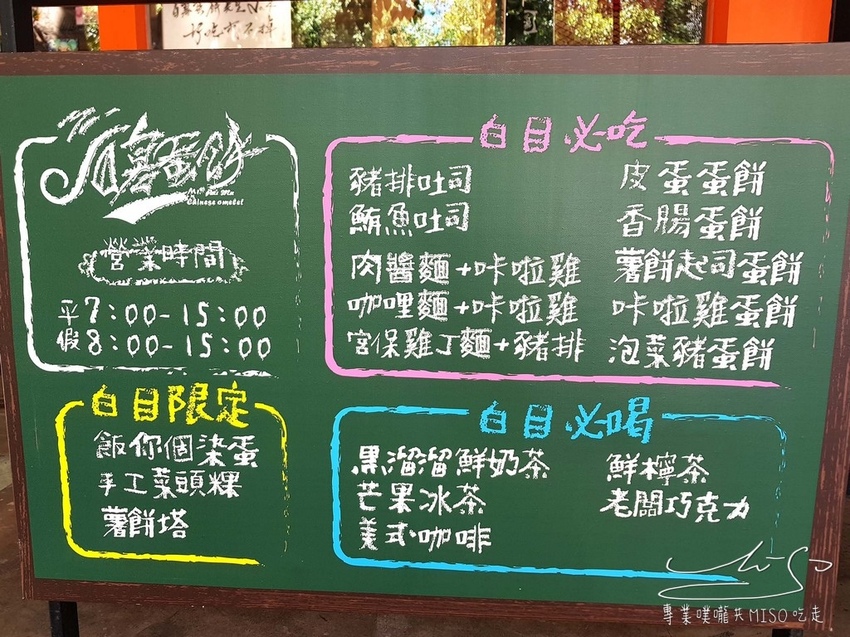 白目蛋餅
Mr. Bai Mu
Chinese omelet
營業時間
平7:00-15:00
假8:00-15:00
白目限定
飯你個柒蛋
手工菜頭粿
薯餅塔
白目必吃
豬排吐司
鮪魚吐司
肉醬麵+咔啦雞
咖哩麵+咔啦雞
宮保雞丁麵+豬排
皮蛋蛋餅
香腸蛋餅
薯餅起司蛋餅
咔啦雞蛋餅
泡菜豬蛋餅
白目必喝
黑溜溜鮮奶茶
芒果冰茶
美式咖啡
鮮檸茶
老闆巧克力
專業噗嚨共MISO吃走